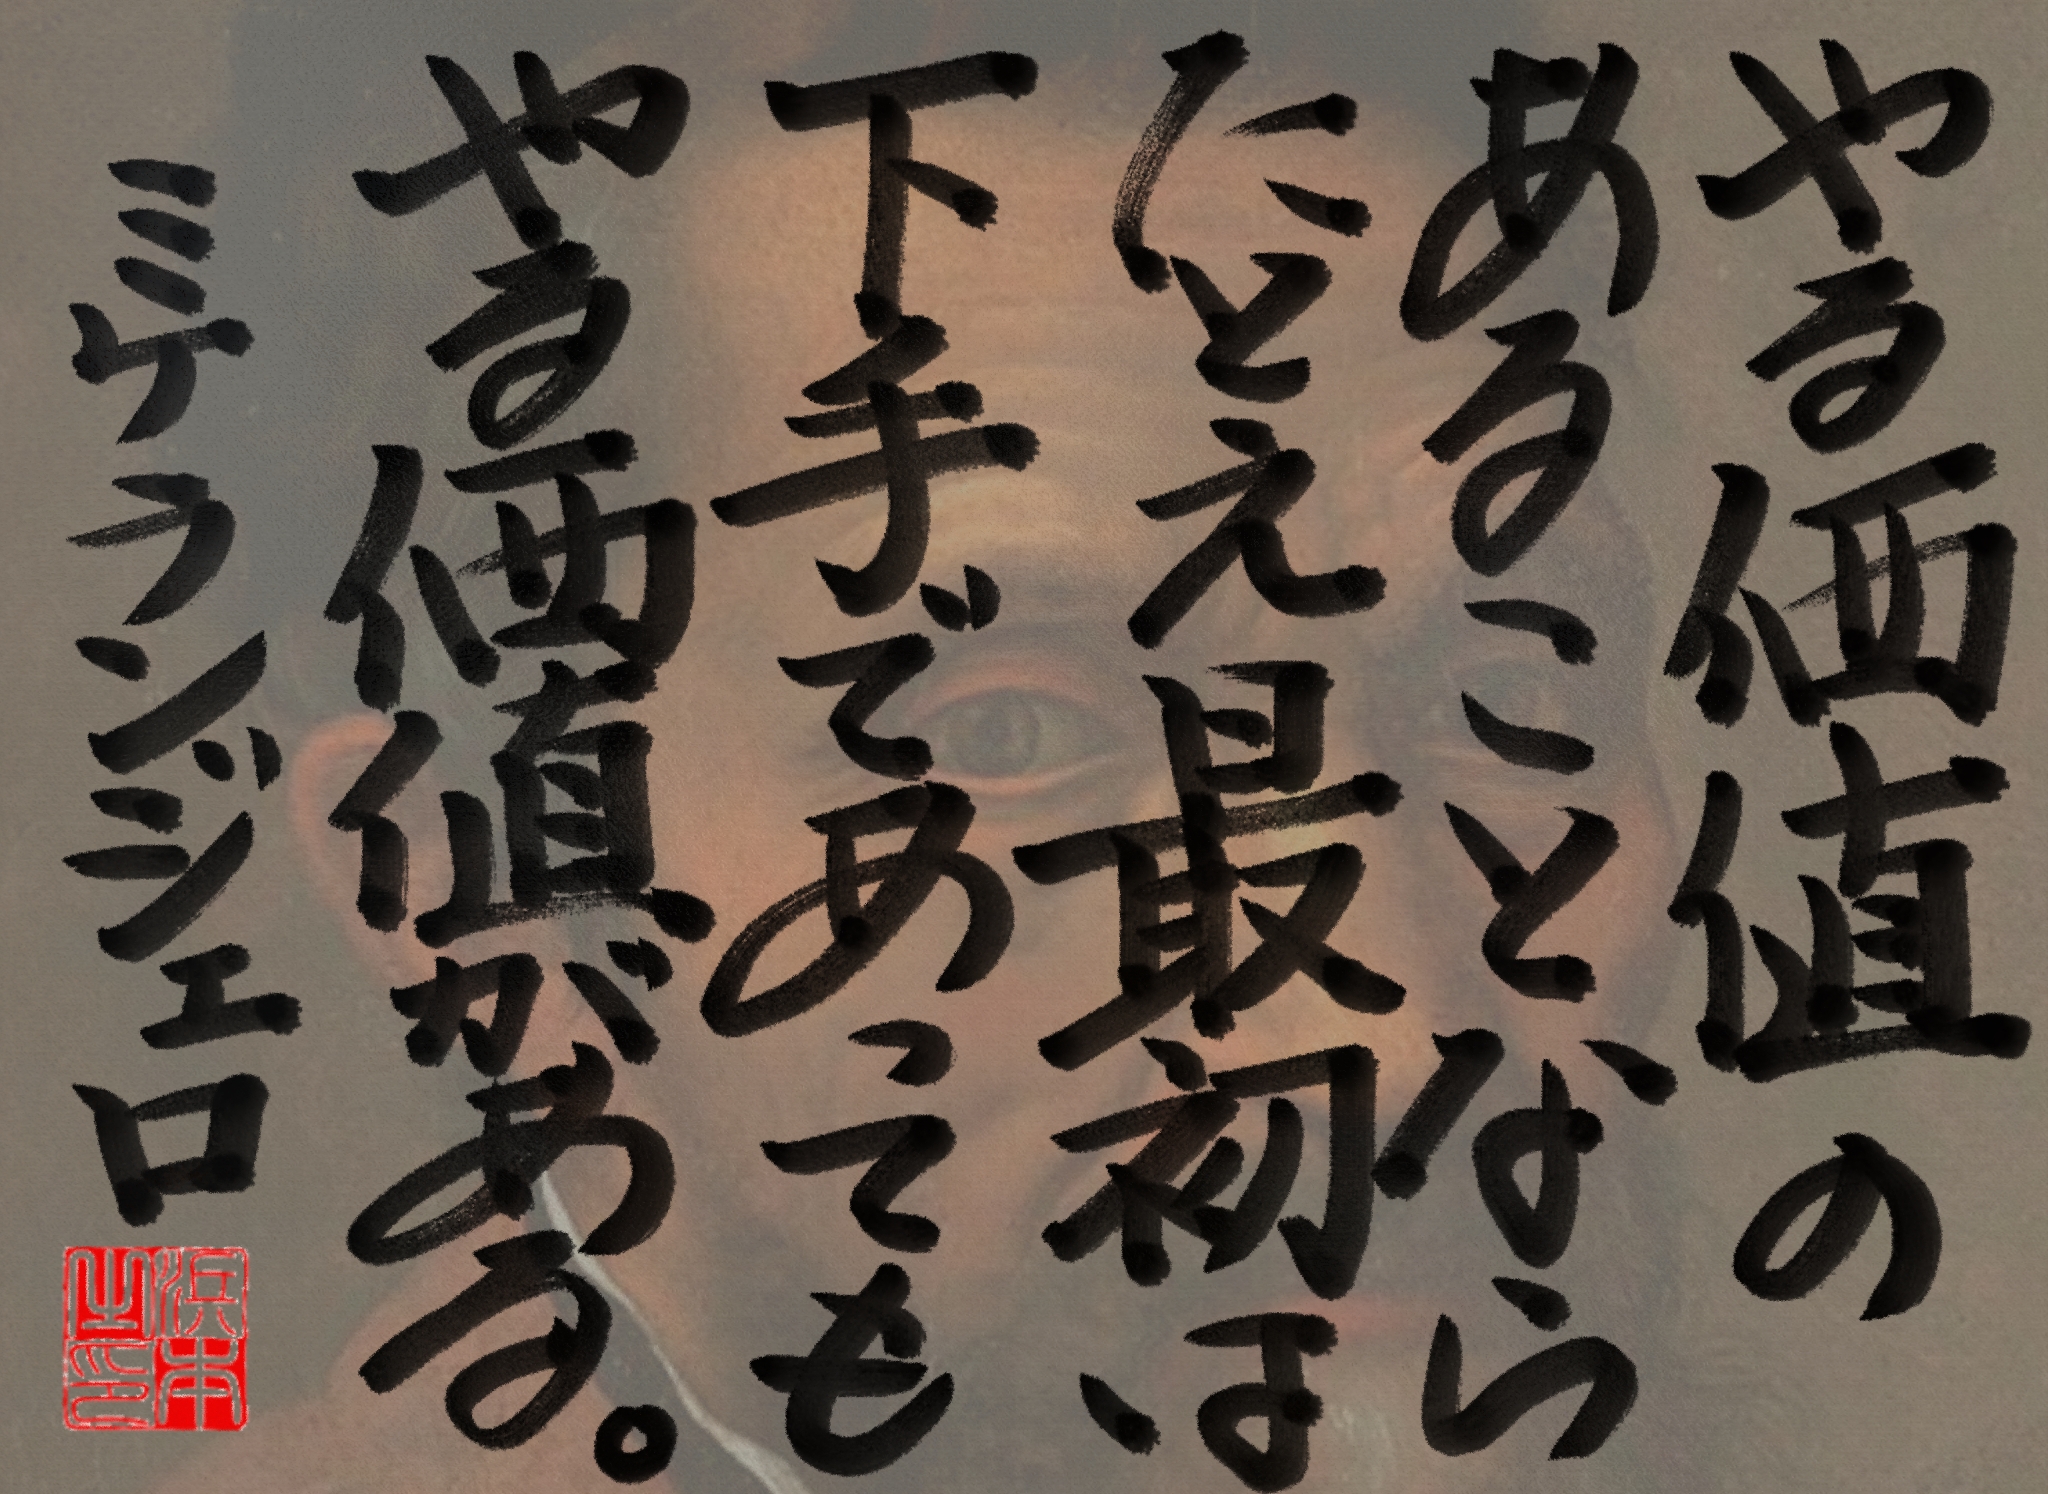 やる価値の
あることなら
たとえ最初は、
下手であっても
やる価値がある。
ミケランジェロ
浜本之印